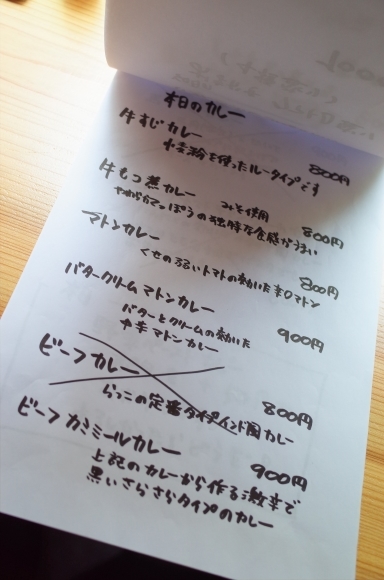 本日のカレー
牛すじカレー
小麦粉を使ったルータイプです 800円
牛もつ煮カレー みそ使用
やわらかてっぽうの独特な食感がうまい 800円
マトンカレー
くせの弱いトマトの効いた辛口マトン 800円
バタークリームマトンカレー
バターとクリームの効いた 900円
中辛マトンカレー
ビーフカレー
らっこの定番タイプインド風カレー 800円
ビーフカシミールカレー
上記のカレーから作る激辛で 900円
黒いさらさらタイプのカレー